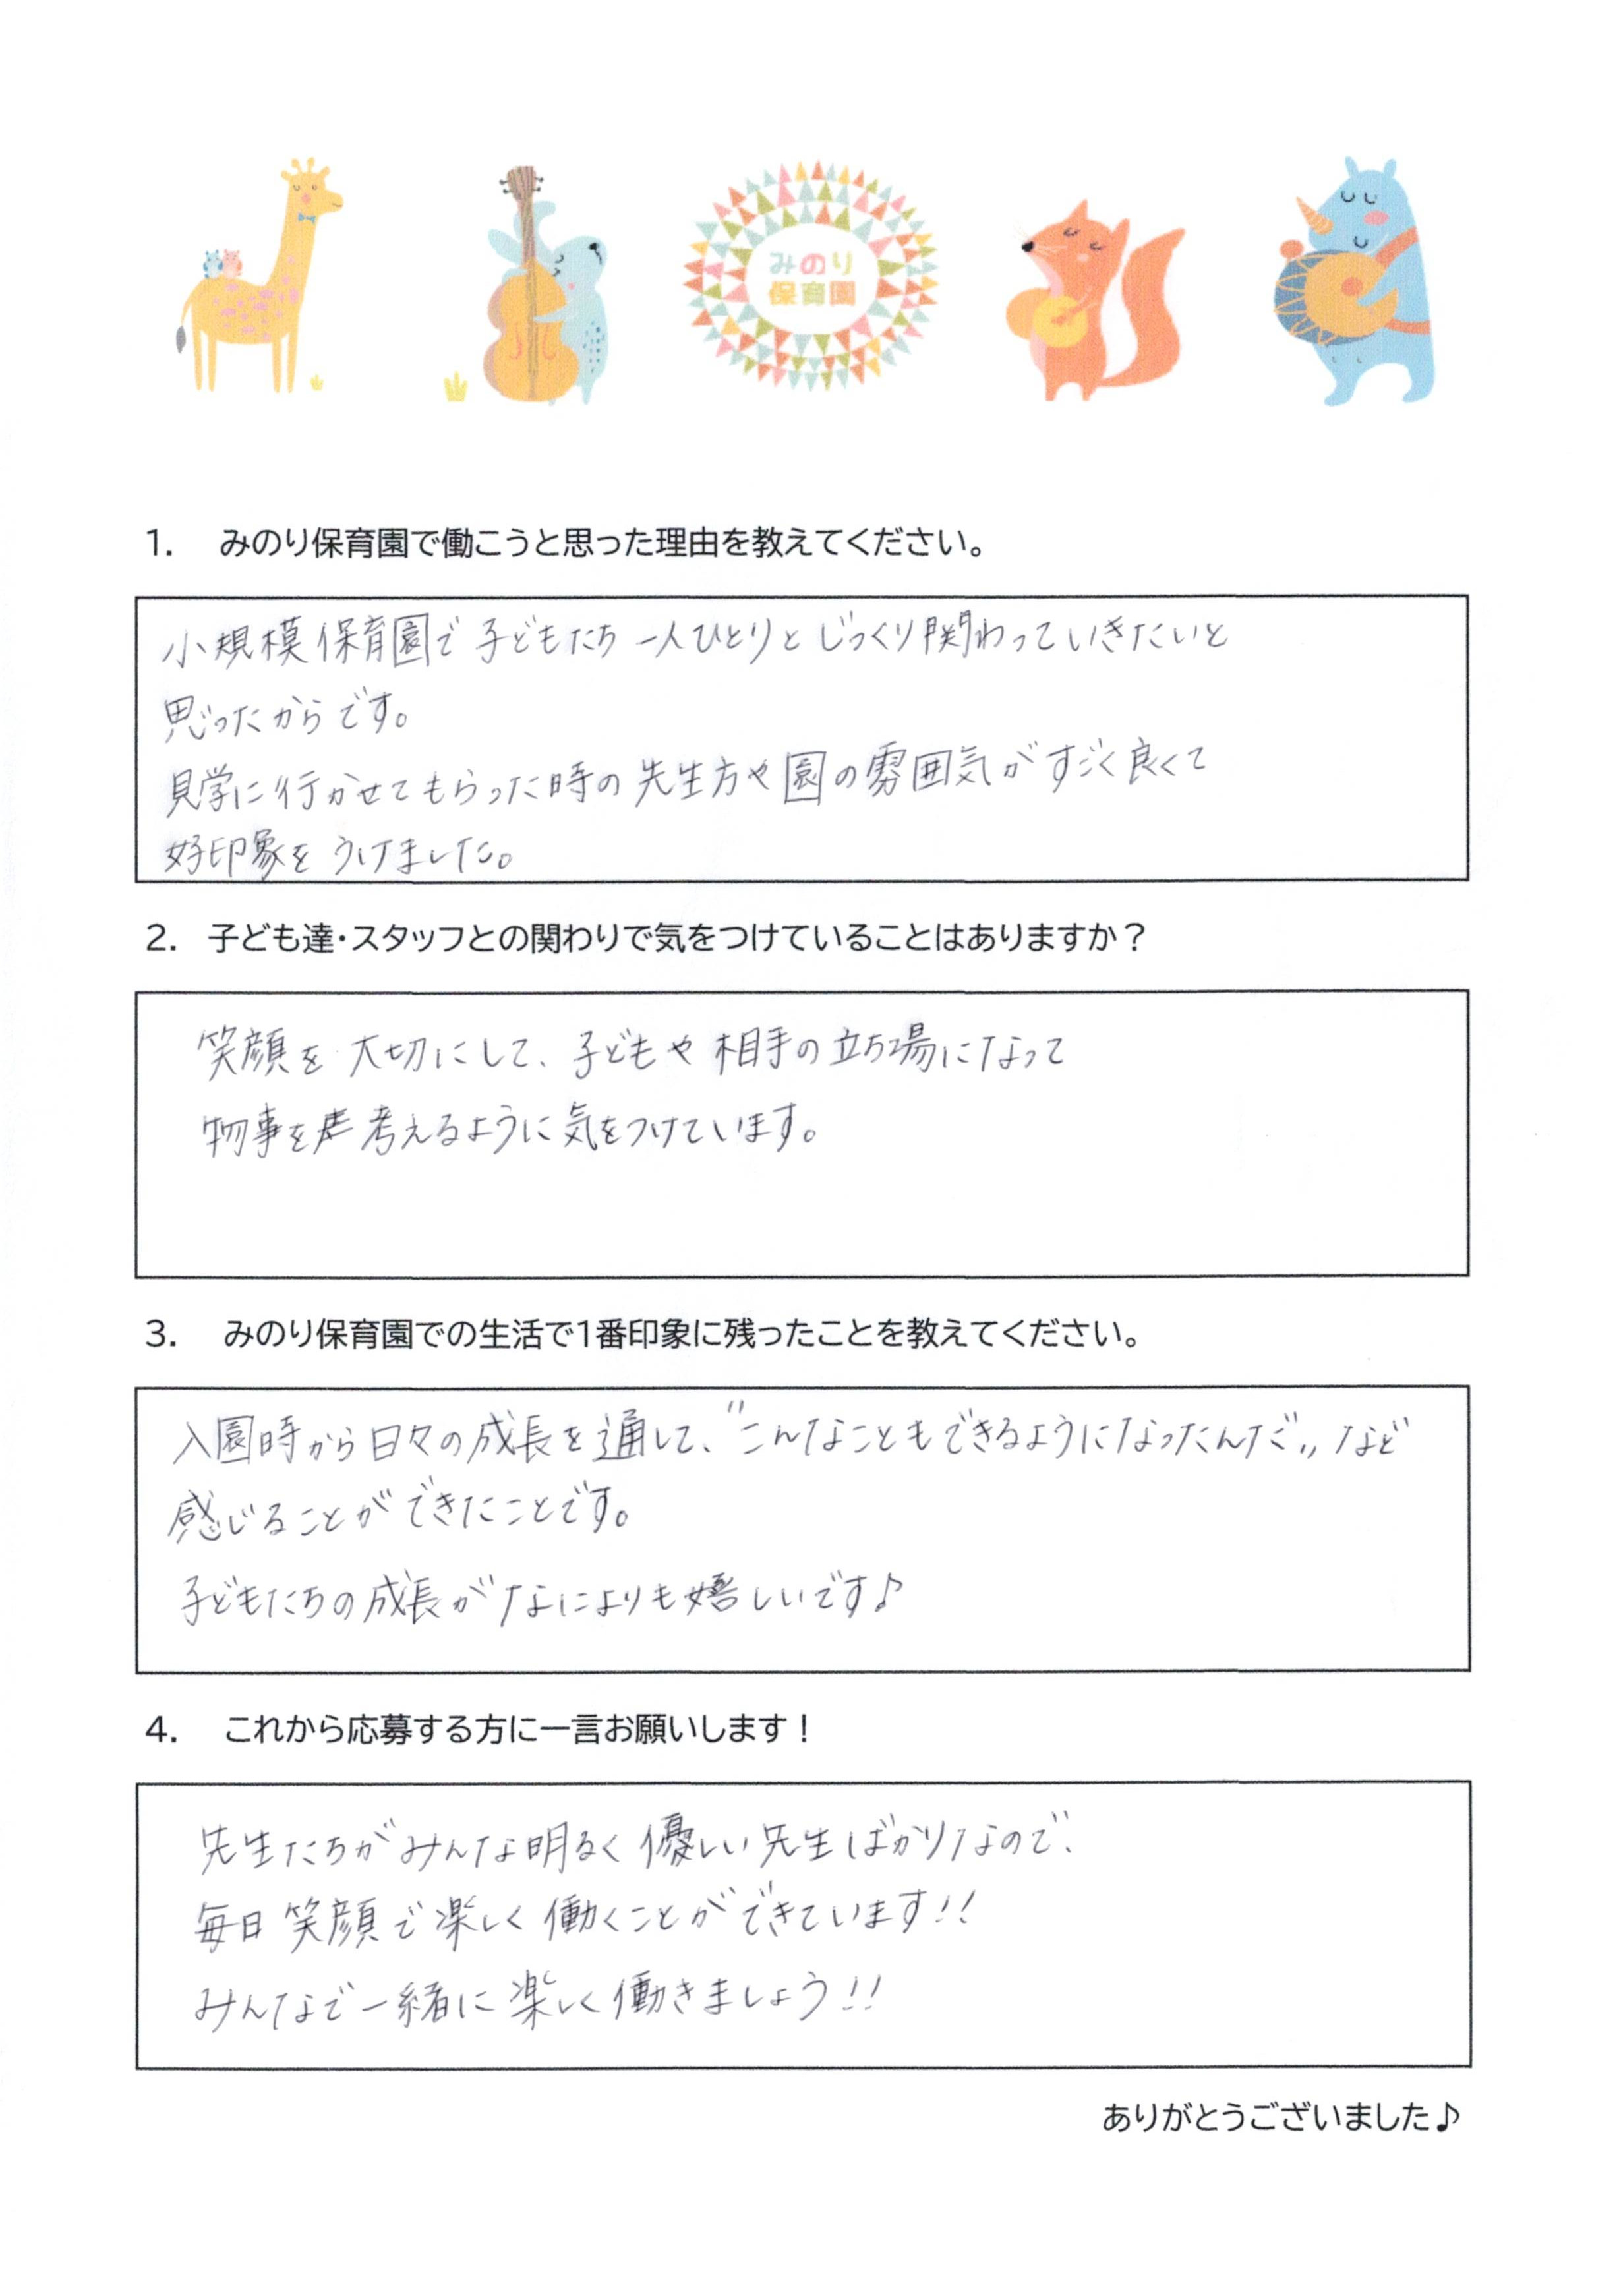 みのり
保育園
1. みのり保育園で働こうと思った理由を教えてください。
小規模保育園で子どもたち一人ひとりとじっくり関わっていきたいと
思ったからです。
見学に行かせてもらった時の先生方や園の雰囲気がすごく良くて
好印象をうけました。
2. 子ども達・スタッフとの関わりで気をつけていることはありますか？
笑顔を大切にして、子どもや相手の立ち場になって
物事を考えるように気をつけています。
3. みのり保育園での生活で1番印象に残ったことを教えてください。
入園時から日々の成長を通して、〝こんなこともできるようになったんだ〟など
感じることができたことです。
子どもたちの成長がなによりも嬉しいです♪
4. これから応募する方に一言お願いします！
先生たちがみんな明るく優しい先生ばかりなので、
毎日笑顔で楽しく働くことができています!!
みんなで一緒に楽しく働きましょう!!
ありがとうございました♪